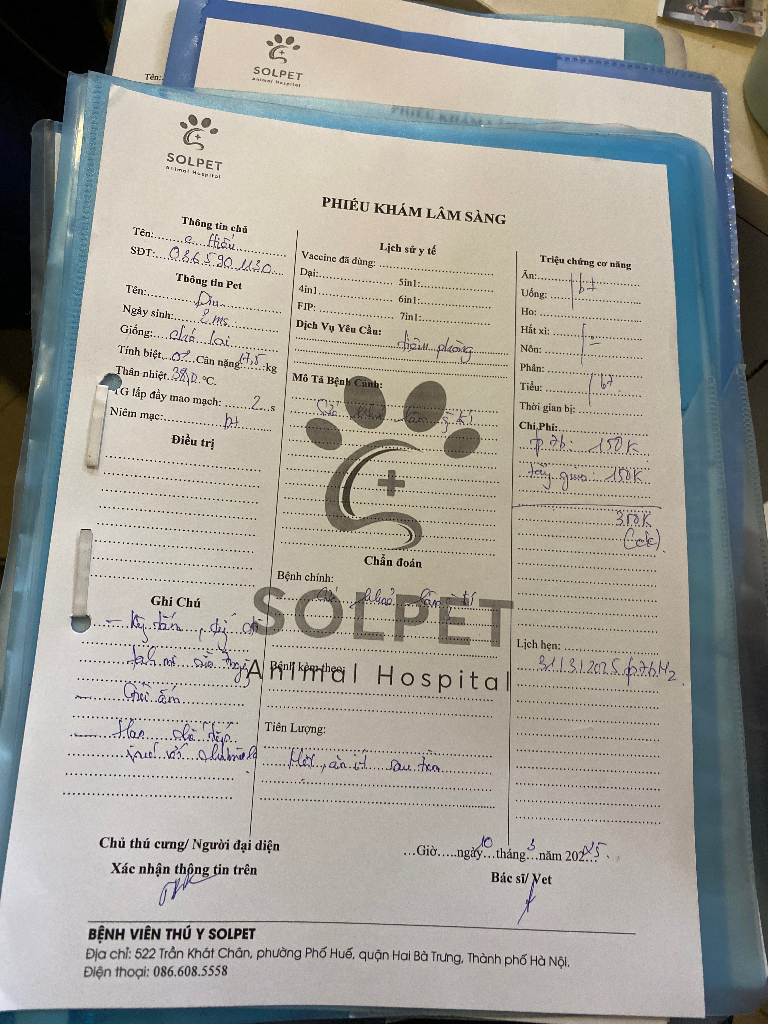 SOLPET
Animal Hospital
Tên:
PHIẾU KHÁM LÂM SÀNG
SOLPET
Animal Hospital
PHIẾU KHÁM LÂM SÀNG
Thông tin chủ
Tên: c Hiếu
SĐT: 086590 1130
Thông tin Pet
Tên:
Ngày sinh: 2 ms
Giống: chó lai
Tính biệt: Cân nặng: 17,5 kg
Thân nhiệt: °C.
TG lấp đầy mao mạch: 2 s
Niêm mạc: bt
Điều trị
Ghi Chú
- Kỵ tắm,
-
-
Lịch sử y tế
Vaccine đã dùng:
Dại: 5in1:
4in1 6in1:
FIP: 7in1:
Dịch Vụ Yêu Cầu: tiêm phòng
Mô Tả Bệnh Cảnh:
Chẩn đoán
Bệnh chính:
Bệnh kèm theo:
Tiên Lượng:
Mệt, ăn ít sau tiêm
Triệu chứng cơ năng
Ăn:
Uống: bt
Ho:
Hắt xì: -
Nôn:
Phân:
Tiểu: bt
Thời gian bị:
Chi Phí:
p7b: 150K
tẩy giun: 150K
350K
(ck)
Lịch hẹn:
31/3/2025 p7b M2
SOLPET
Animal Hospital
Chủ thú cưng/ Người đại diện
Xác nhận thông tin trên
…Giờ…..ngày 10 tháng 3 năm 2025
Bác sĩ/ Vet
BỆNH VIỆN THÚ Y SOLPET
Địa chỉ: 522 Trần Khát Chân, phường Phố Huế, quận Hai Bà Trưng, Thành phố Hà Nội.
Điện thoại: 086.608.5558